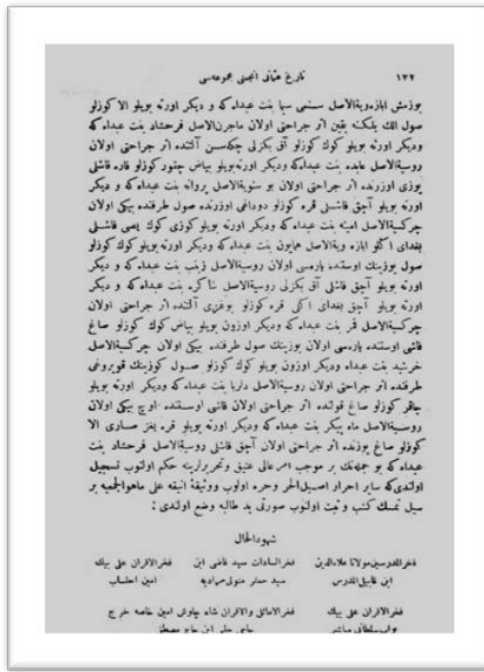 ١٣٢ تاريخ عثمانى انجمنى مجموعه‌سى
بوزمش ابازه‌وية الاصل سمى سبا بنت عبداه كه و ديكر اورته بويلو الا كوزلو
صول الك يلكنه يقين اثر جراحتى اولان ماجرن‌الاصل فرحشاد بنت عبداه كه
وديكر اورته بويلو كوك كوزلو آق بكزلى چكه‌سن آلتنده اثر جراحتى اولان
روسية‌الاصل عابده بنت عبداه كه وديكر اورته بويلو بياض چقور كوزلو قاره قاشلى
يوزى اوزرنده اثر جراحتى اولان بوسنوية‌الاصل پروانه بنت عبداه كه و ديكر
اورته بويلو آچق قاشلى قره كوزلو دوداغى اوزرنده صول طرفنده بيكى اولان
چركسية‌الاصل امينه بنت عبداه كه وديكر اورته بويلو كوزى كوك يصى قاشلى
بغداى اكلو ابازه وية‌الاصل همايون بنت عبداه كه وديكر اورته بويلو كوك كوزلو
صول بوزينك اوستنده ياره‌سى اولان روسية‌الاصل زينب بنت عبداه كه و ديكر
اورته بويلو آچق قاشلى آق بكزلى روسية‌الاصل شاكره بنت عبداه كه و ديكر
اورته بويلو آچق بغداى اكلى قره كوزلو بوغزى آلتنده اثر جراحتى اولان
چركسية‌الاصل قمر بنت عبداه كه وديكر اوزون بويلو بياض كوك كوزلو صاغ
قاشى اوستنده ياره‌سى اولان بوزينك صول طرفنده بيكى اولان چركسية‌الاصل
خرشيد بنت عبداه وديكر اوزون بويلو كوك كوزلو صول كوزينك قويروغى
طرفنده اثر جراحتى اولان روسية‌الاصل داربا بنت عبداه كه وديكر اورته بويلو
چاقر كوزلو صاغ قولنده اثر جراحتى اولان قاشى اوستنده اوچ بيكى اولان
روسية‌الاصل ماه پيكر بنت عبداه كه وديكر اورته بويلو قره يغز صارى الا
كوزلو صاغ بوزنده اثر جراحتى اولان آچق قاشلى روسية‌الاصل فرحشاد بنت
عبداه كه بو جمله‌نك بر موجب امر عالى عتيق و تحريرلرينه حكم اولنوب تسجيل
اولندى كه ساير احرار اصيل‌الحر وحره اولوب ووثيقۀ انيقه على ماهوالجميه بر
سبيل تمسك كتب وثبت اولنوب صورتى يد طالبه وضع اولندى :
شهودالحال
فخرالمدرسين مولانا علاءالدين فخرالسادات سيد قاضى ابن فخرالاقران على بيك
ابن قابيل المدرس سيد جعفر متولى مراديه امين احتساب
فخرالاقران على بيك فخرالاماثل والاقران شاه چاوش امين خاصه خرج